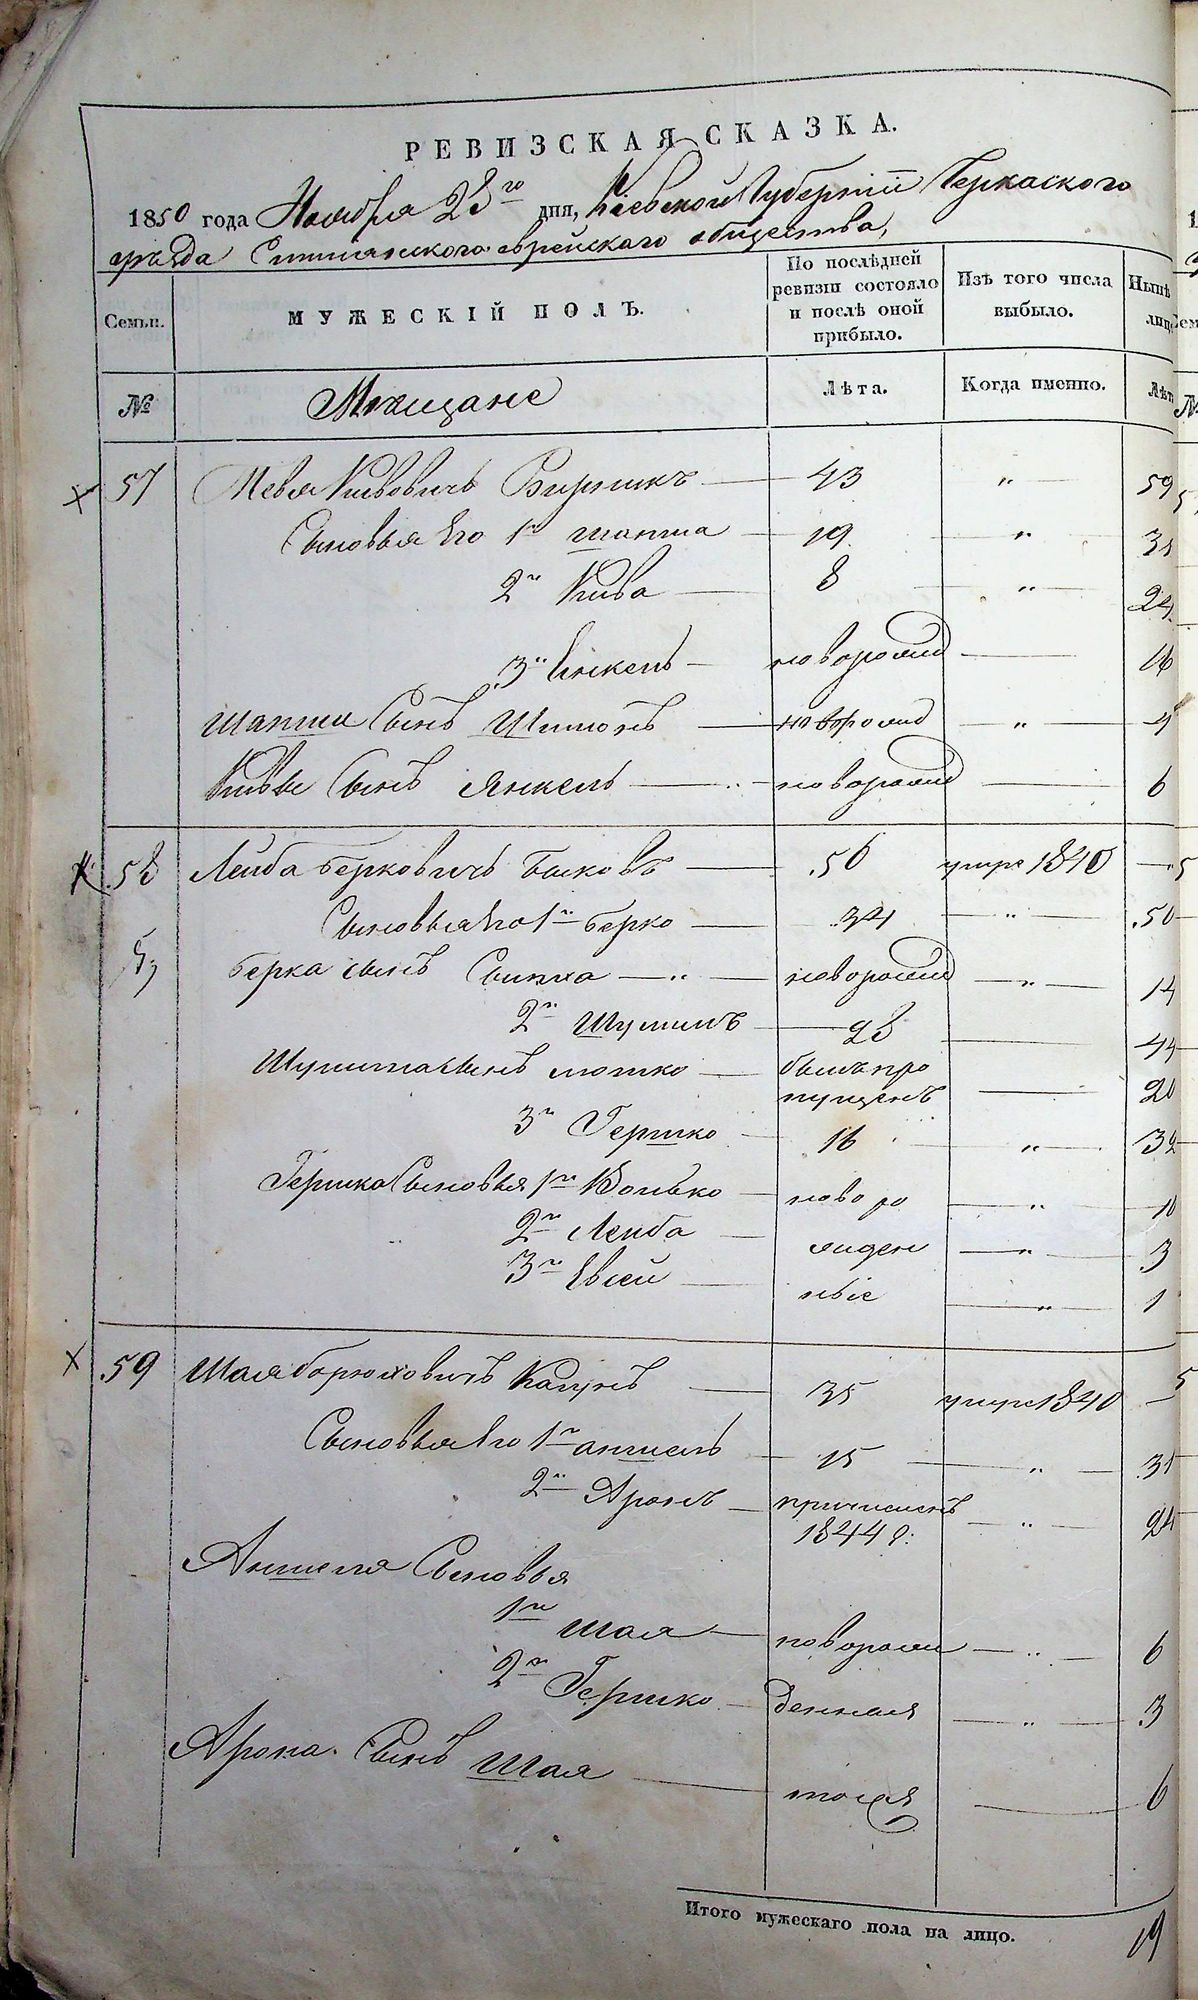 РЕВИЗСКАЯ СКАЗКА.
1850 года Ноября 23го дня, Киевской Губернии Черкаского
уѣзда еврейскаго общества,
Семьи.
МУЖЕСКІЙ ПОЛЪ.
По послѣдней ревизіи состояло и послѣ оной прибыло.
Изъ того числа выбыло.
Нынѣ лиц
№
Мѣщане
Лѣта.
Когда именно.
Лѣт
57 Кивовичъ 43 " 59
Сыновья Его 1й Шапша 19 " 35
2й Кива 8 " 24
3й Янкель новорожд 16
Шапши Сынъ Шимонъ новорожд " 4
Кивы Сынъ Янкель новорожд 6
58 Лейба Берковичъ Быковъ 56 умре 1840 —
Сыновья Его 1й Берко 34 " 50
Берка сынъ Симха новорожд " 14
2й Шулимъ 28 44
Шулима сынъ Мошко былъ про
пущенъ 20
3й Гершко 16 " 32
Гершка Сыновья 1й Волько ново ро " 10
2й Лейба жден " 3
3й Евсей ные " 1
59 Шая Борюховичъ Каганъ 35 умре 1840 —
Сыновья Его 1й Аншель 15 " 31
2й Аронъ причисленъ
1844 г. " 24
Аншеля Сыновья
1й Шая новорож " 6
2й Гершко денная " 3
Арона Сынъ Шая тожъ 6
Итого мужескаго пола на лицо. 19